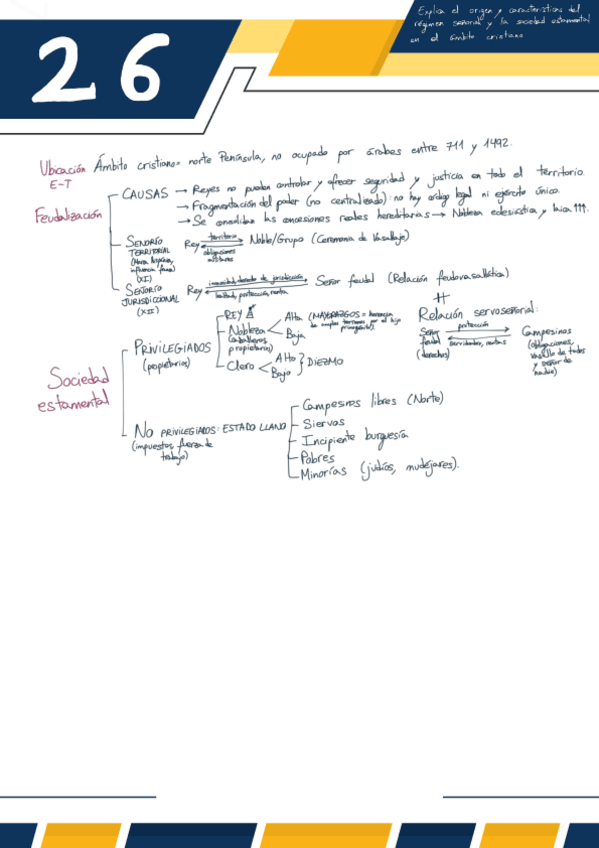 26
Explica el origen y características del
régimen señorial y la sociedad estamental
en el ámbito cristiano
Ubicación E-T
Ámbito cristiano= norte Península, no ocupado por árabes entre 711 y 1492.
Feudalización
CAUSAS → Reyes no pueden controlar y ofrecer seguridad y justicia en todo el territorio.
→ Fragmentación del poder (no centralizado): no hay código legal ni ejército único.
→ Se consolidan las concesiones reales hereditarias → Nobleza eclesiástica y laica ↑↑↑.
SEÑORÍO
TERRITORIAL
(XI)
Rey territorio Noble/Grupo (Ceremonia de Vasallaje)
obligaciones
SEÑORÍO
JURISDICCIONAL
(XII)
Rey inmunidad, derecho de jurisdicción, Señor feudal (Relación feudovasallática)
lealtad, protección, rentas
Sociedad
estamental
PRIVILEGIADOS
(propietarios)
REY
Nobleza
(caballeros,
propietarios)
Alta (MAYORAZGOS =
Baja
Clero
Alto
Bajo
DIEZMO
Relación servoseñorial:
Señor
feudal
(derechos)
protección
servidumbre, rentas
Campesinos
(obligaciones,
vasallo de todos
y señor de
nadie)
NO PRIVILEGIADOS: ESTADO LLANO
(impuestos, fuerza de
trabajo)
Campesinos libres (Norte)
Siervos
Incipiente burguesía
Pobres
Minorías (judíos, mudéjares).